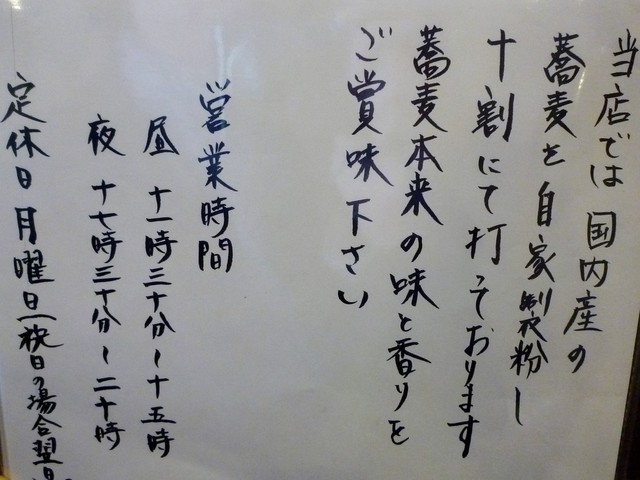 当店では国内産の
蕎麦を自家製粉し
十割にて打っております
蕎麦本来の味と香りを
ご賞味下さい
営業時間
昼 十一時三十分〜十五時
夜 十七時三十分〜二十時
定休日 月曜日(祝日の場合翌日